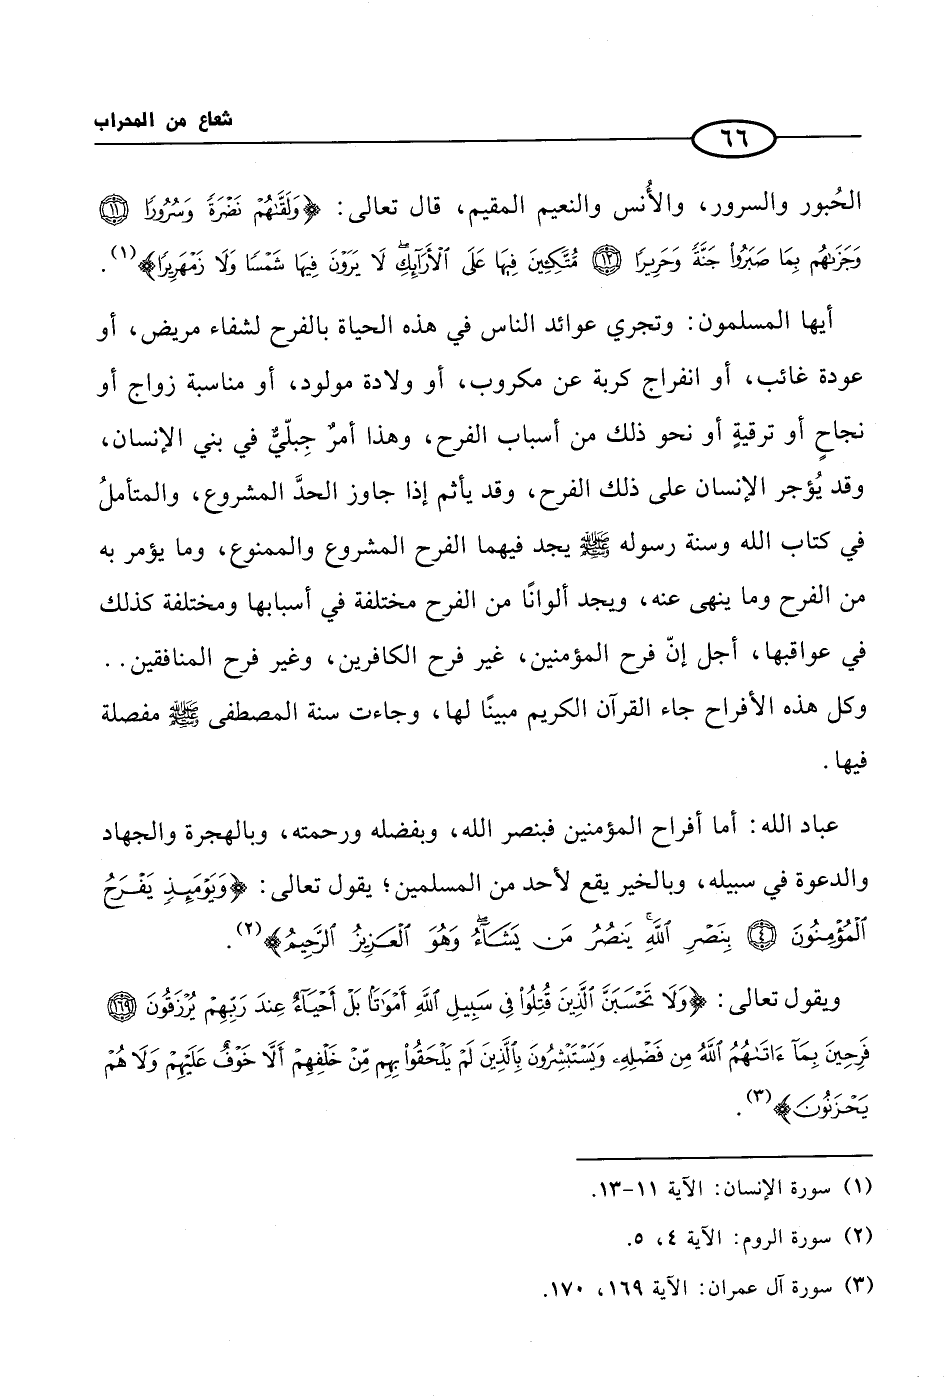 شعاع من المحراب
٦٦
الحُبور والسرور، والأُنس والنعيم المقيم، قال تعالى: ﴿وَلَقَّىٰهُمْ نَضْرَةً وَسُرُورًا ⑪
وَجَزَىٰهُم بِمَا صَبَرُواْ جَنَّةً وَحَرِيرًا ⑫ مُّتَّكِـِٔينَ فِيهَا عَلَى ٱلْأَرَآئِكِۖ لَا يَرَوْنَ فِيهَا شَمْسًا وَلَا زَمْهَرِيرًا﴾(١).
أيها المسلمون: وتجري عوائد الناس في هذه الحياة بالفرح لشفاء مريض، أو
عودة غائب، أو انفراج كربة عن مكروب، أو ولادة مولود، أو مناسبة زواج أو
نجاحٍ أو ترقيةٍ أو نحو ذلك من أسباب الفرح، وهذا أمرٌ جِبلّيٌّ في بني الإنسان،
وقد يُؤجر الإنسان على ذلك الفرح، وقد يأثم إذا جاوز الحدَّ المشروع، والمتأملُ
في كتاب الله وسنة رسوله ﷺ يجد فيهما الفرح المشروع والممنوع، وما يؤمر به
من الفرح وما ينهى عنه، ويجد ألوانًا من الفرح مختلفة في أسبابها ومختلفة كذلك
في عواقبها، أجل إنّ فرح المؤمنين، غير فرح الكافرين، وغير فرح المنافقين..
وكل هذه الأفراح جاء القرآن الكريم مبينًا لها، وجاءت سنة المصطفى ﷺ مفصلة
فيها.
عباد الله: أما أفراح المؤمنين فبنصر الله، وبفضله ورحمته، وبالهجرة والجهاد
والدعوة في سبيله، وبالخير يقع لأحد من المسلمين؛ يقول تعالى: ﴿وَيَوْمَئِذٍ يَفْرَحُ
ٱلْمُؤْمِنُونَ ④ بِنَصْرِ ٱللَّهِۚ يَنصُرُ مَن يَشَآءُۖ وَهُوَ ٱلْعَزِيزُ ٱلرَّحِيمُ﴾(٢).
ويقول تعالى: ﴿وَلَا تَحْسَبَنَّ ٱلَّذِينَ قُتِلُواْ فِى سَبِيلِ ٱللَّهِ أَمْوَٰتًۢا بَلْ أَحْيَآءٌ عِندَ رَبِّهِمْ يُرْزَقُونَ (١٦٩)
فَرِحِينَ بِمَآ ءَاتَىٰهُمُ ٱللَّهُ مِن فَضْلِهِۦ وَيَسْتَبْشِرُونَ بِٱلَّذِينَ لَمْ يَلْحَقُواْ بِهِم مِّنْ خَلْفِهِمْ أَلَّا خَوْفٌ عَلَيْهِمْ وَلَا هُمْ
يَحْزَنُونَ﴾(٣).
(١) سورة الإنسان: الآية ١١-١٣.
(٢) سورة الروم: الآية ٤، ٥.
(٣) سورة آل عمران: الآية ١٦٩، ١٧٠.